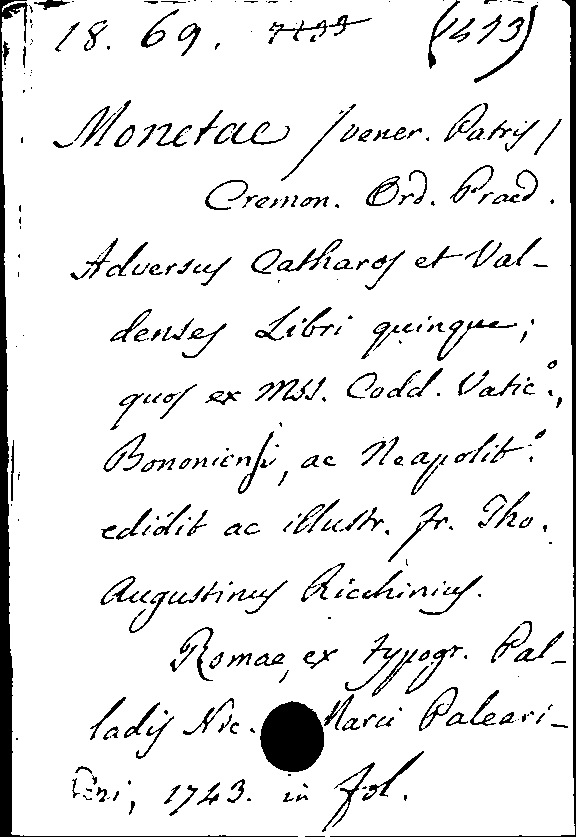 18. 69. 7133 (1473)
Monetae /vener. Patris/
Cremon. Ord. Praed.
Adversus Catharos et Val-
denses Libri quinque;
quos ex Mss. Codd. Vatic.º,
Bononiensi, ac Neapolit.º
edidit ac illustr. fr. Tho.
Augustinus Ricchinius.
Romae, ex typogr. Pal-
ladis Nic. Marci Paleari-
ni, 1743. in fol.